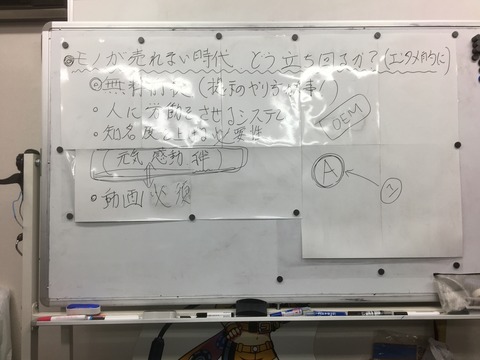 ◎モノが売れない時代 どう立ち回るか?(エンタメ的に)
◎無料前提(技術のやり方が大事!)
・人に労働をさせるシステム
・知名度を上げる必要性
(元気 感動 絆)
・動画必須
OEM
A
1